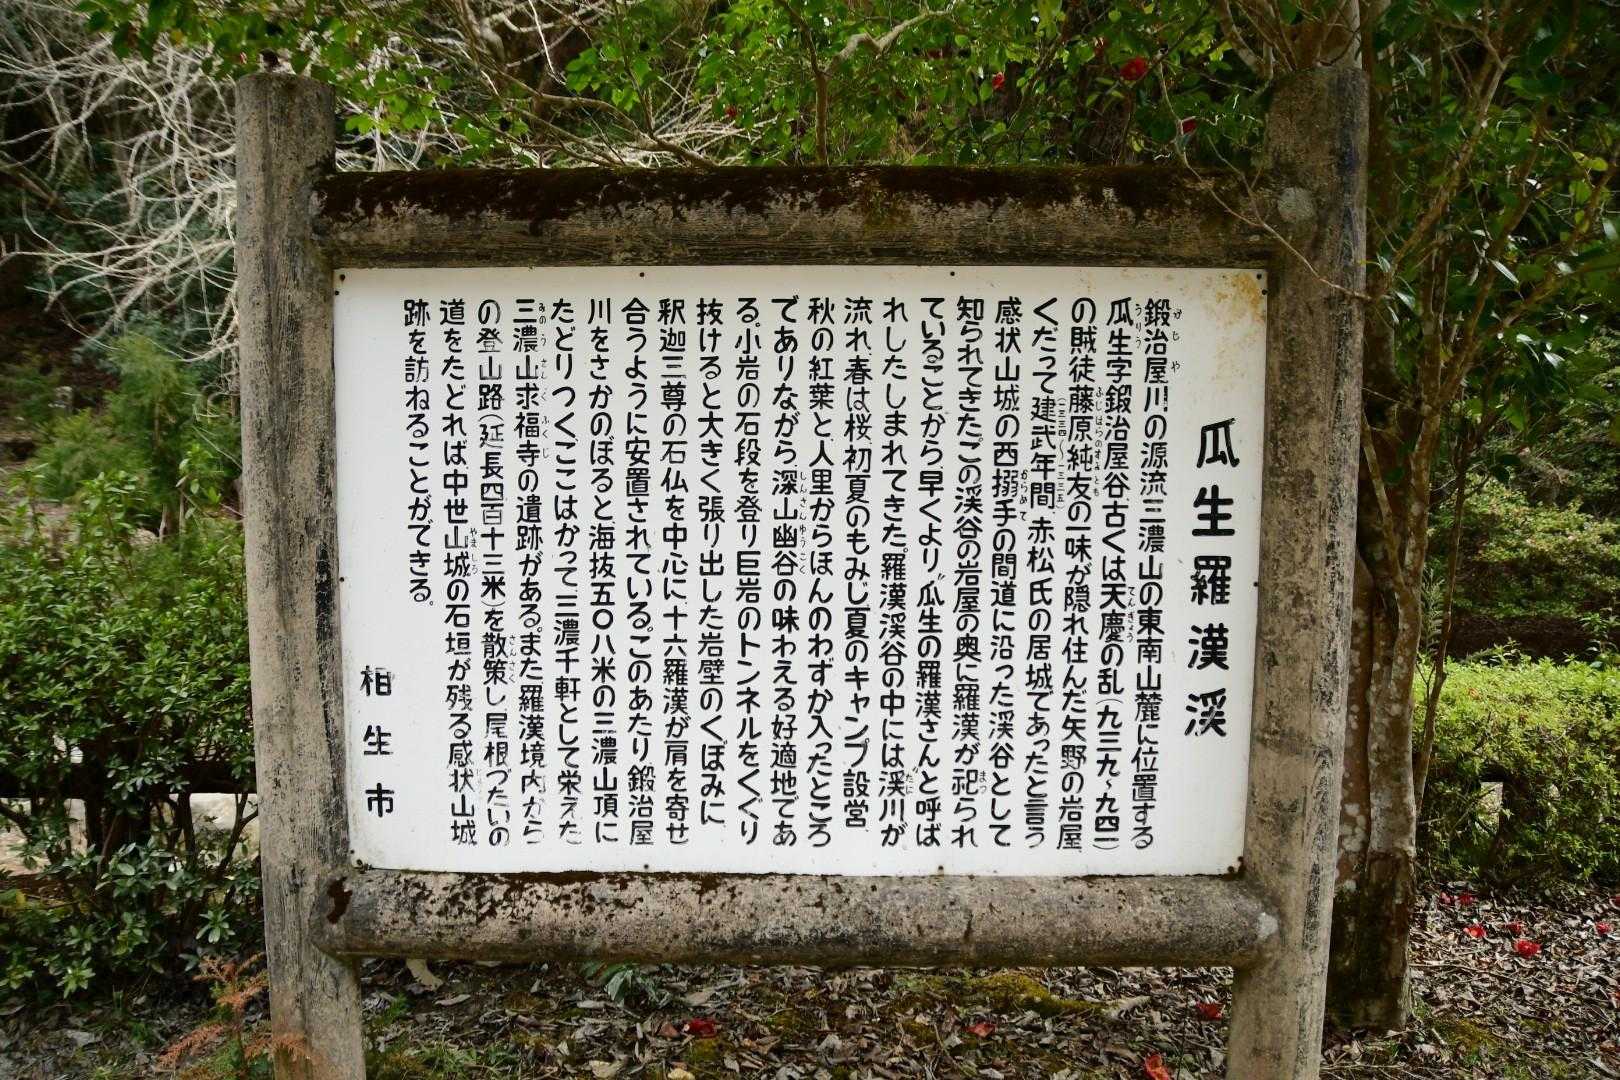 瓜生羅漢渓
鍛冶屋川の源流三濃山の東南山麓に位置する
瓜生字鍛冶屋谷、古くは天慶の乱(九三九～九四一)
の賊徒藤原純友の一味が隠れ住んだ矢野の岩屋
くだって建武年間、赤松氏の居城であったと言う
感状山城の西搦手の間道に沿った渓谷として
知られてきた。この渓谷の岩屋の奥に羅漢が祀られ
ていることから、早くより〝瓜生の羅漢さんと呼ば
れしたしまれてきた。羅漢渓谷の中には渓川が
流れ、春は桜、初夏のもみじ夏のキャンプ設営、
秋の紅葉と、人里からほんのわずか入ったところ
でありながら、深山幽谷の味わえる好適地であ
る。小岩の石段を登り巨岩のトンネルをくぐり
抜けると大きく張り出した岩壁のくぼみに
釈迦三尊の石仏を中心に、十六羅漢が肩を寄せ
合うように安置されている。このあたり鍛冶屋
川をさかのぼると海抜五〇八米の三濃山頂に
たどりつく、ここはかって、三濃千軒として栄えた
三濃山求福寺の遺跡がある。また羅漢境内から
の登山路(延長四百十三米)を散策し、尾根づたいの
道をたどれば、中世山城の石垣が残る感状山城
跡を訪ねることができる。
相生市